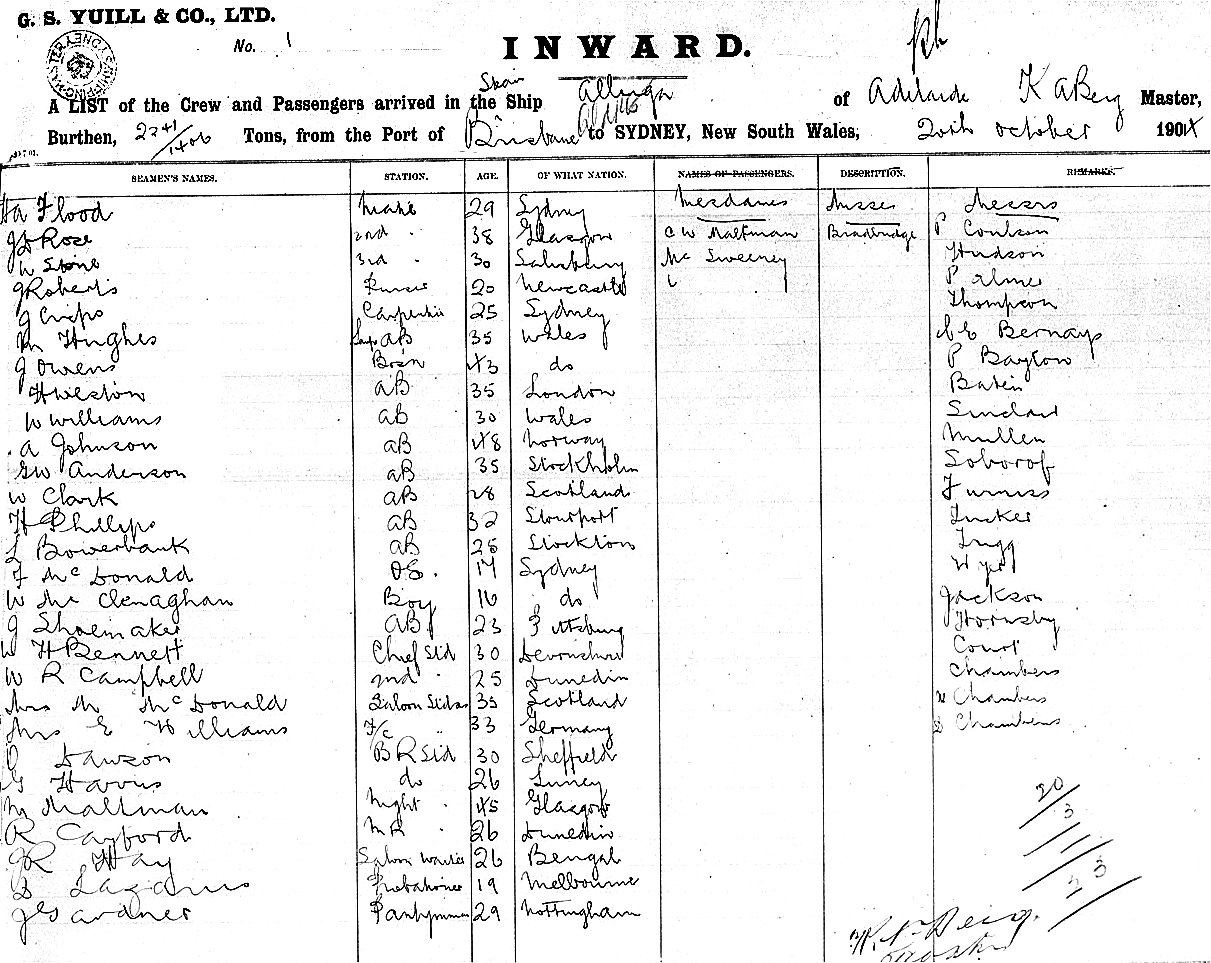 G. S. YUILL & CO., LTD.
No. 1
INWARD.
A LIST of the Crew and Passengers arrived in the Ship Allinga of Adelaide K A Berg Master,
Burthen, 2241/1406 Tons, from the Port of Brisbane to SYDNEY, New South Wales, 20th October 190
SEAMEN'S NAMES. STATION. AGE. OF WHAT NATION. NAMES OF PASSENGERS. DESCRIPTION. REMARKS.
Flood Mate 29 Sydney Mesdames Misses Messrs
Rose 2nd 38 Glasgow C W Maltman Bradbridge P Coulson
W Stone 3rd 30 Salisbury Mc Sweeney Hudson
J Roberts Purser 20 Newcastle Palmer
J Cripps Carpenter 25 Sydney Thompson
M Hughes Lamps AB 35 Wales Bernays
J Owens Bosn 43 do P Baylow
H Weston AB 35 London
W Williams AB 30 Wales Sinclair
A Johnson AB 48 Norway Mullen
GW Anderson AB 35 Stockholm Soborof
W Clark AB 28 Scotland Furniss
H Phillips AB 32 Stourport Tucker
L Bowerbank AB 28 Stockton Trigg
F McDonald OS. 17 Sydney
W McClenaghan Boy 16 do Jackson
J Shoemaker AB 23 Pittsburg Hornsby
W H Bennett Chief Std 30 Devonshire Court
W R Campbell 2nd " 25 Dunedin Chambers
Mrs M McDonald Saloon Stdss 35 Scotland Chambers
Mrs E Williams F/c " 33 Germany Chambers
Dawson B R Std 30 Sheffield
G Harris do 26
M Maltman Night " 45 Glasgow
R Cayford 26 Dunedin
JR Hay Saloon Waiter 26 Bengal
Lazarus Probationer 19 Melbourne
J Gardner Pantryman 29 Nottingham
20
3
11
23